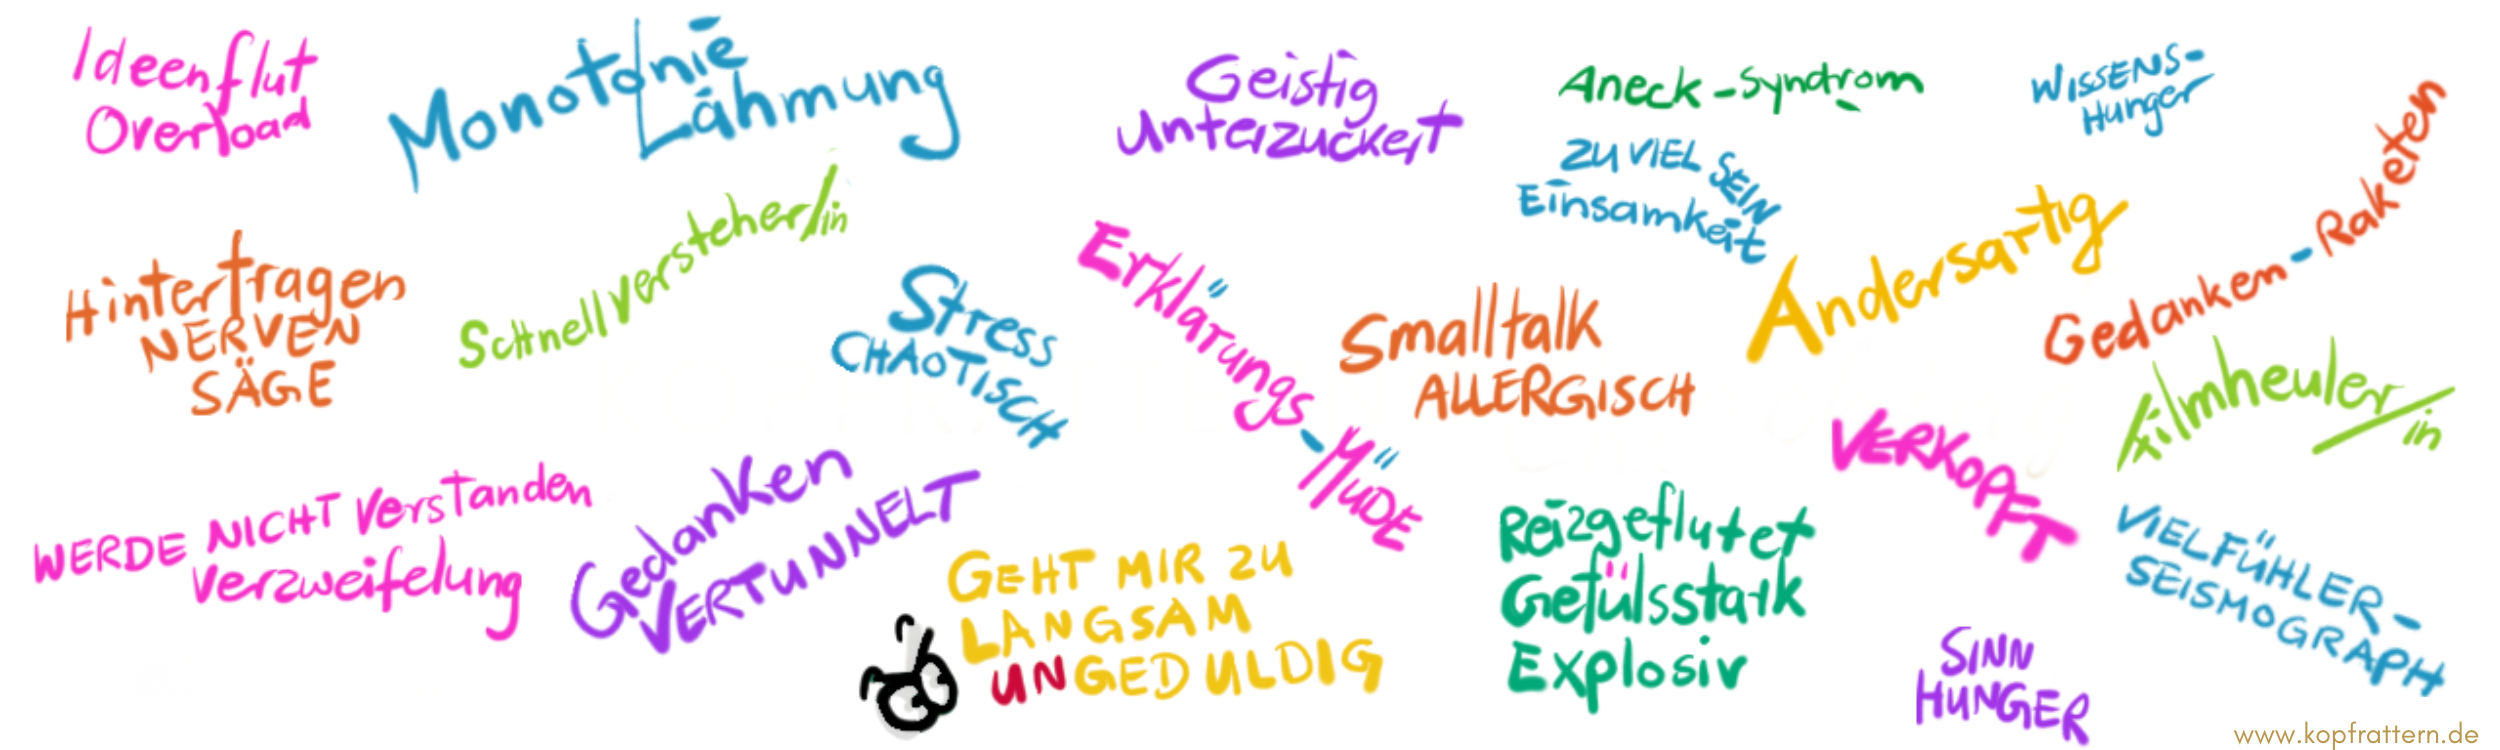 Ideenflut
Overload
Monotonie
Lähmung
Geistig
Unterzuckert
Aneck-Syndrom
WISSENS-
Hunger
ZU VIEL SEIN
Einsamkeit
Hinterfragen
NERVEN
SÄGE
Schnellversteher/in
Stress
CHAOTISCH
Erklärungs-MÜDE
Smalltalk
ALLERGISCH
Andersartig
Gedanken-Raketen
Filmheuler/in
VERKOPFT
WERDE NICHT Verstanden
Verzweifelung
Gedanken
VERTUNNELT
GEHT MIR ZU
LANGSAM
UNGEDULDIG
Reizgeflutet
Gefülsstark
Explosiv
VIELFÜHLER-
SEISMOGRAPH
SINN
HUNGER
www.kopfrattern.de